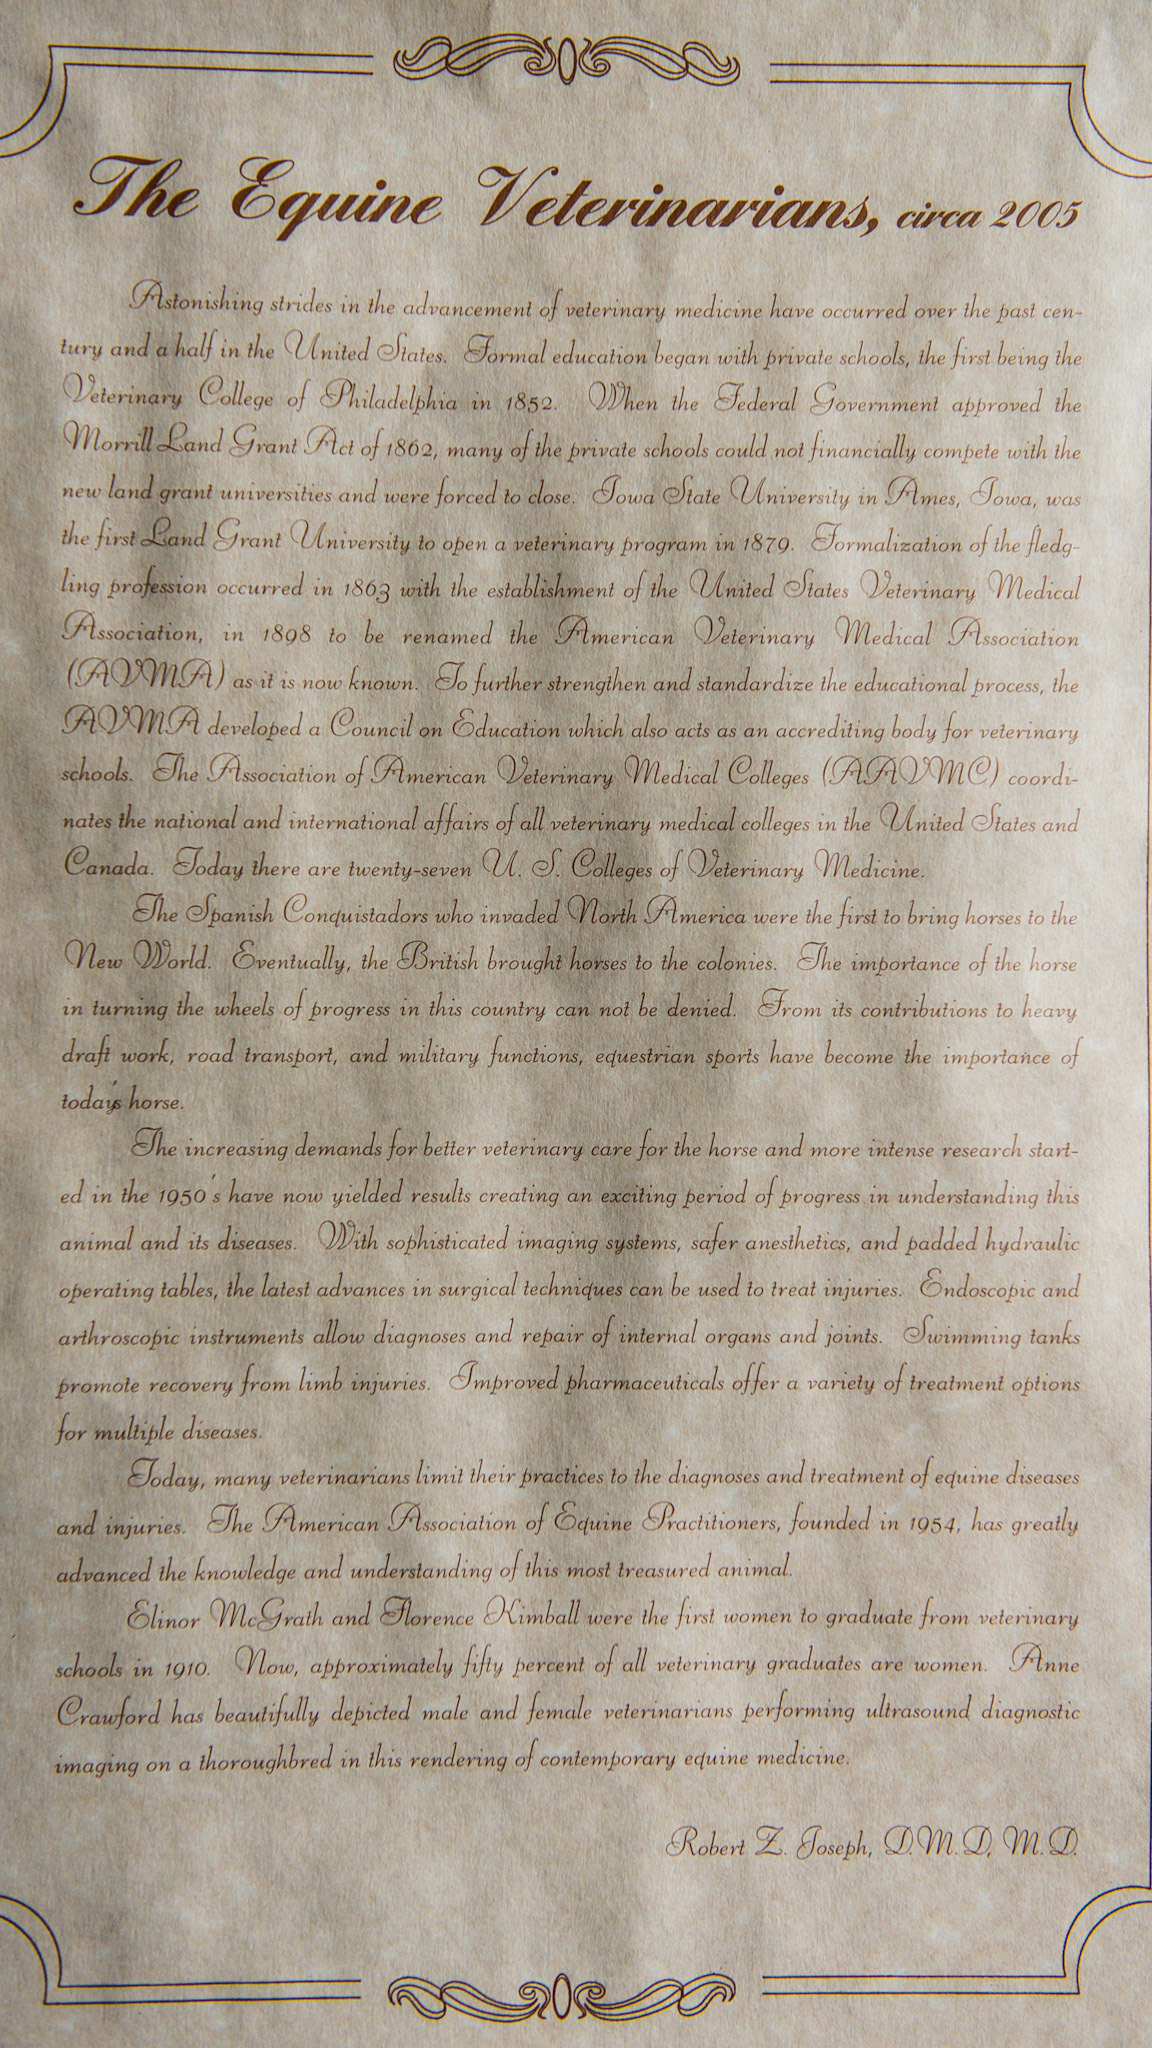 The Equine Veterinarians, circa 2005
Astonishing strides in the advancement of veterinary medicine have occurred over the past cen-
tury and a half in the United States. Formal education began with private schools, the first being the
Veterinary College of Philadelphia in 1852. When the Federal Government approved the
Morrill Land Grant Act of 1862, many of the private schools could not financially compete with the
new land grant universities and were forced to close. Iowa State University in Ames, Iowa, was
the first Land Grant University to open a veterinary program in 1879. Formalization of the fledg-
ling profession occurred in 1863 with the establishment of the United States Veterinary Medical
Association, in 1898 to be renamed the American Veterinary Medical Association
(AVMA) as it is now known. To further strengthen and standardize the educational process, the
AVMA developed a Council on Education which also acts as an accrediting body for veterinary
schools. The Association of American Veterinary Medical Colleges (AAVMC) coordi-
nates the national and international affairs of all veterinary medical colleges in the United States and
Canada. Today there are twenty-seven U. S. Colleges of Veterinary Medicine.
The Spanish Conquistadors who invaded North America were the first to bring horses to the
New World. Eventually, the British brought horses to the colonies. The importance of the horse
in turning the wheels of progress in this country can not be denied. From its contributions to heavy
draft work, road transport, and military functions, equestrian sports have become the importance of
today's horse.
The increasing demands for better veterinary care for the horse and more intense research start-
ed in the 1950's have now yielded results creating an exciting period of progress in understanding this
animal and its diseases. With sophisticated imaging systems, safer anesthetics, and padded hydraulic
operating tables, the latest advances in surgical techniques can be used to treat injuries. Endoscopic and
arthroscopic instruments allow diagnoses and repair of internal organs and joints. Swimming tanks
promote recovery from limb injuries. Improved pharmaceuticals offer a variety of treatment options
for multiple diseases.
Today, many veterinarians limit their practices to the diagnoses and treatment of equine diseases
and injuries. The American Association of Equine Practitioners, founded in 1954, has greatly
advanced the knowledge and understanding of this most treasured animal.
Elinor McGrath and Florence Kimball were the first women to graduate from veterinary
schools in 1910. Now, approximately fifty percent of all veterinary graduates are women. Anne
Crawford has beautifully depicted male and female veterinarians performing ultrasound diagnostic
imaging on a thoroughbred in this rendering of contemporary equine medicine.
Robert Z. Joseph, D.M.D, M.D.